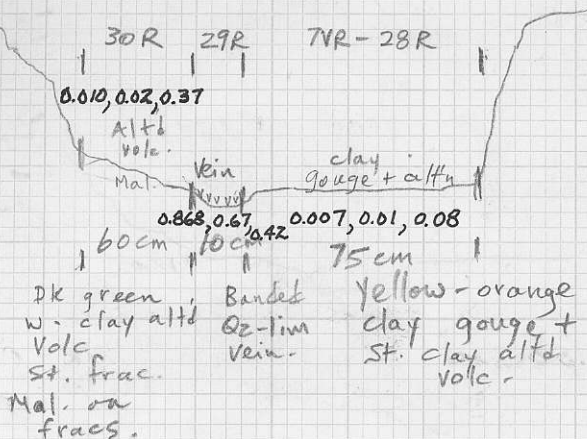 30R 29R 7VR-28R
0.010, 0.02, 0.37
Altd
volc.
Mal.
Vein
clay
gouge + altn
0.868, 0.67, 0.42
0.007, 0.01, 0.08
60cm 10cm 75cm
Dk green
w- clay altd
Volc
St. frac.
Mal. on
fracs.
Banded
Qz-lim
vein.
Yellow-orange
clay gouge +
St. clay altd
volc.